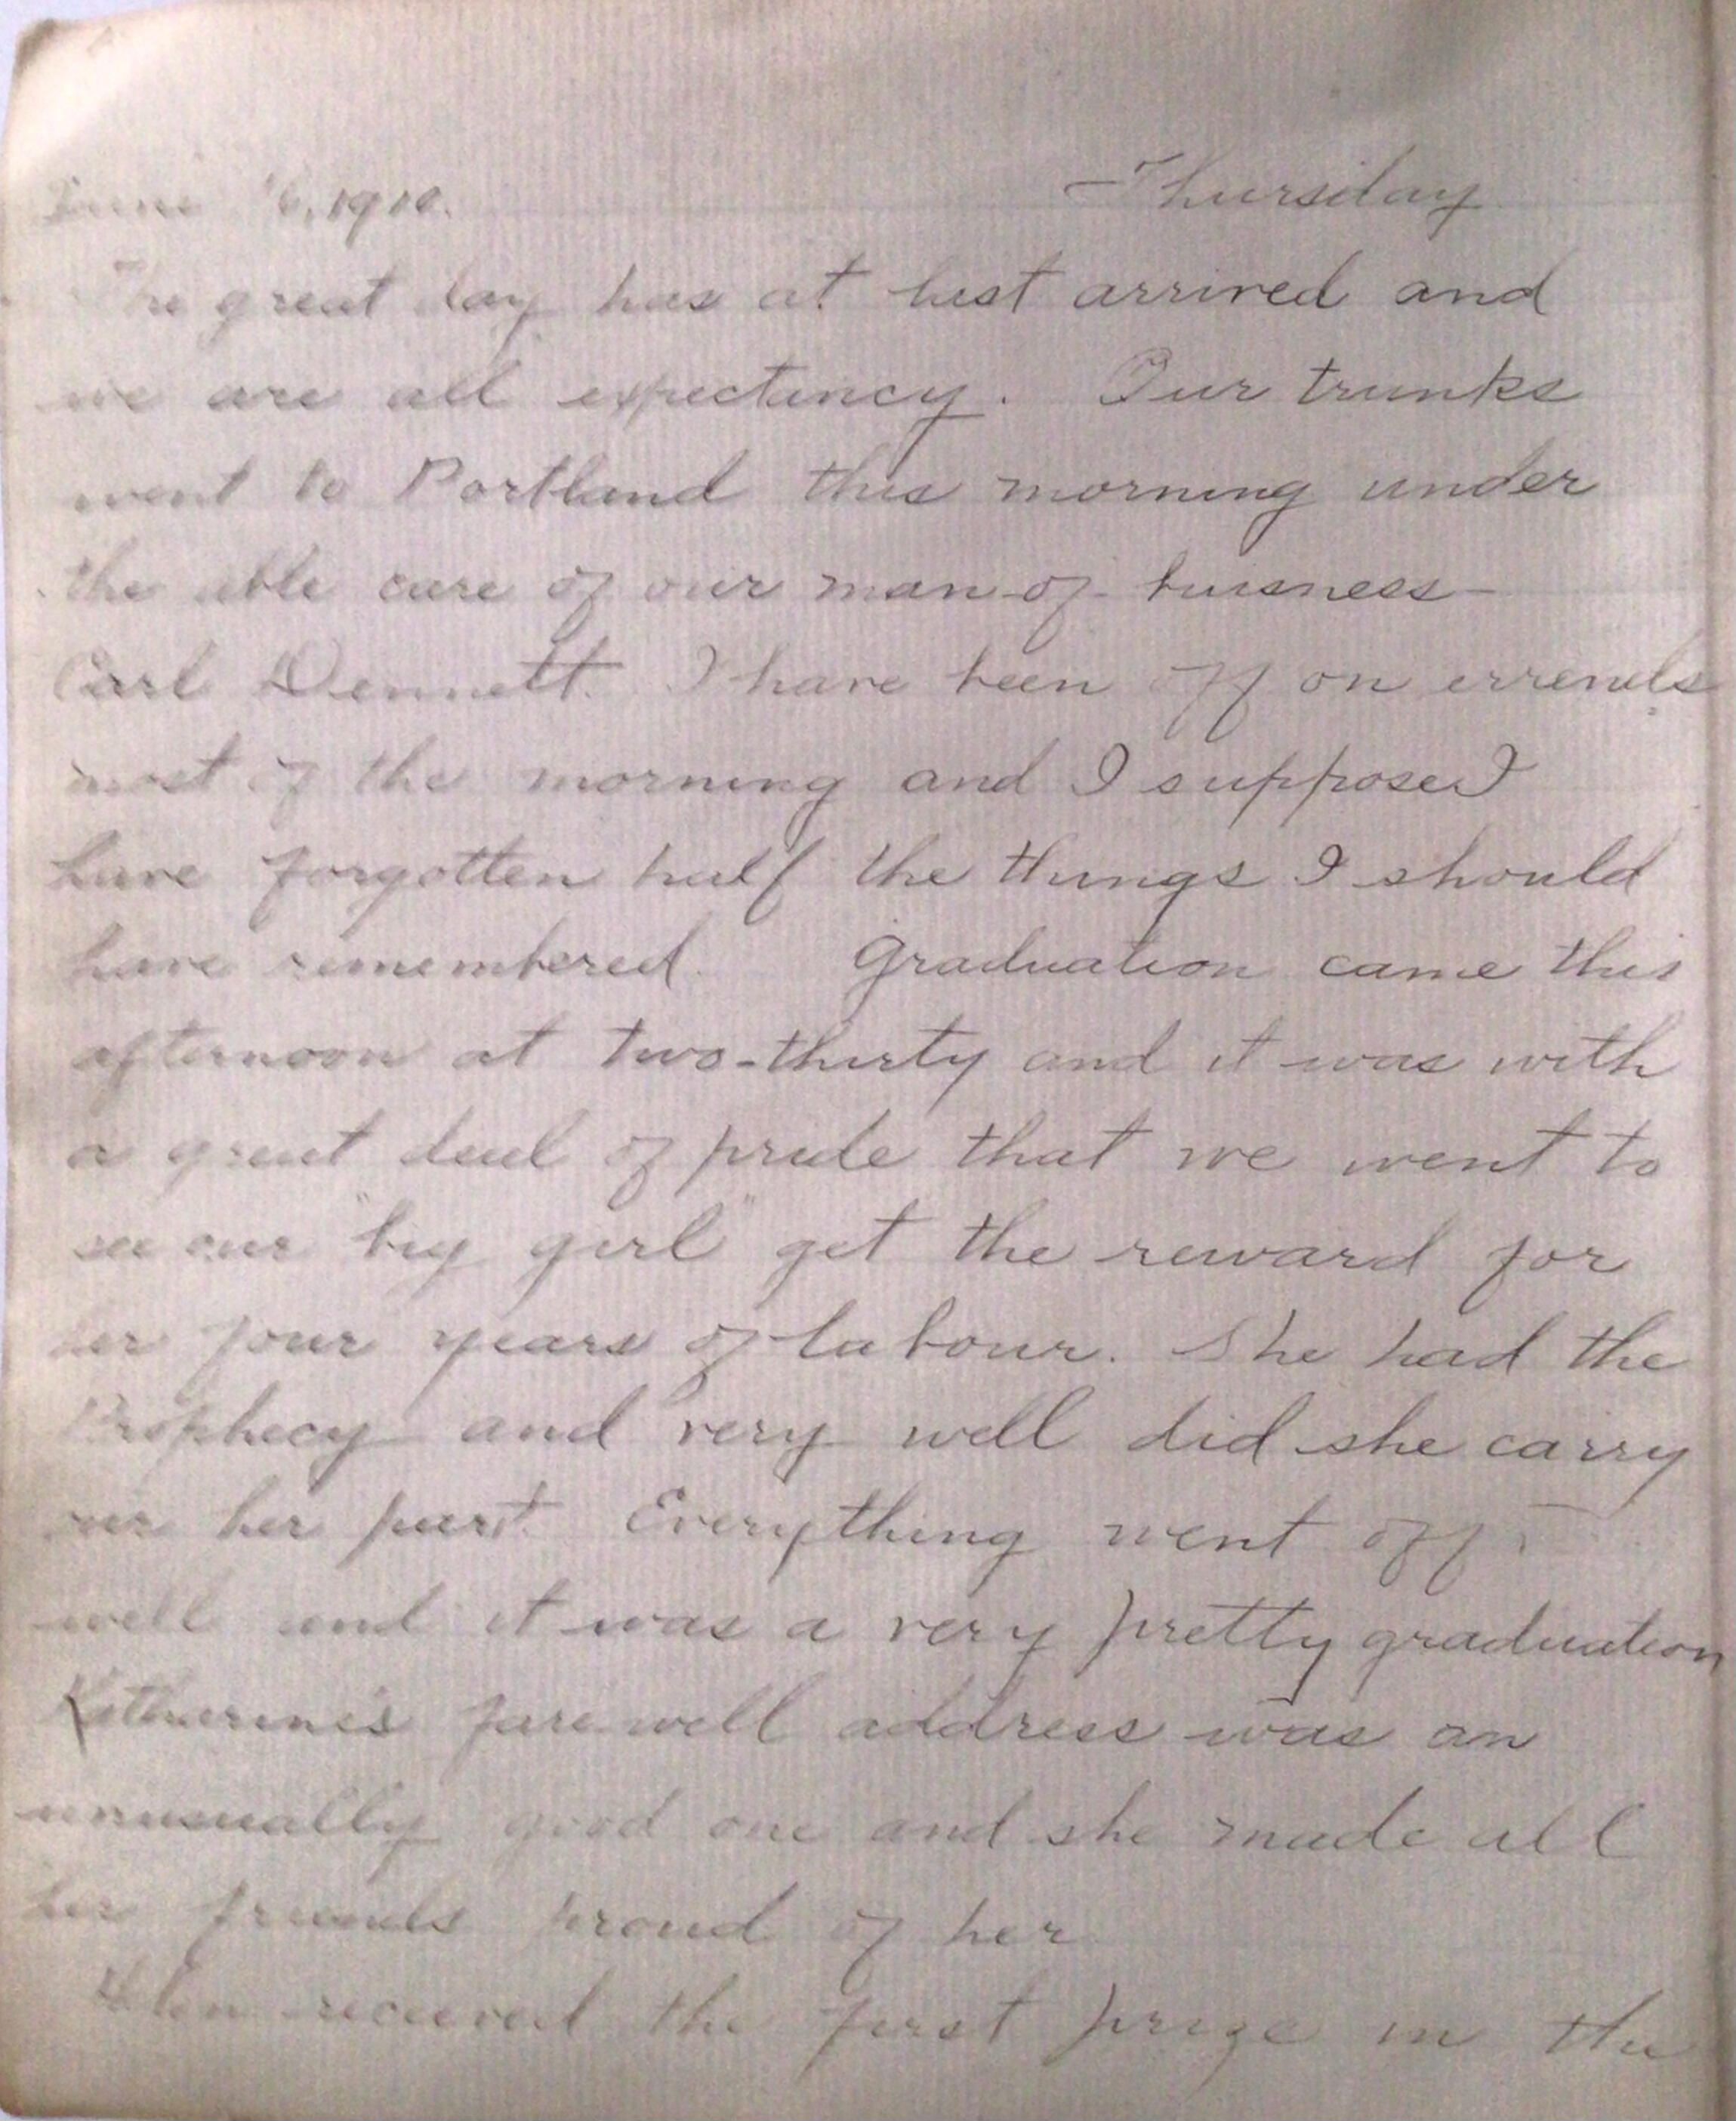 June 16, 1910. Thursday
The great day has at last arrived and
we are all expectancy. Our trunks
went to Portland this morning under
the able care of our man-of-buisness-
Carl Dennett. I have been off on errends
most of the morning and I suppose I
have forgotten half the things I should
have remembered. Graduation came this
afternoon at two-thirty and it was with
a great deal of pride that we went to
see our "big girl" get the reward for
her four years of labour. She had the
Prophecy and very well did she carry
her part. Everything went off
well and it was a very pretty graduation
Katharine's farewell address was an
unusually good one and she made all
her friends proud of her
Helen received the first prize in the